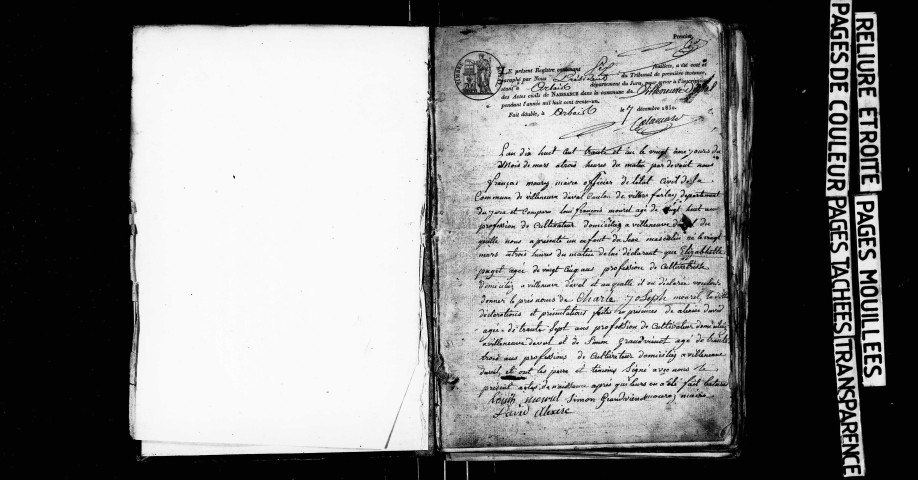 Premier
LE présent Registre contenant feuillets, a été coté et
paraphé par Nous Président du Tribunal de première instance,
séant à Arbois département du Jura, pour servir à l'inscription
des Actes civils de NAISSANCE dans la commune de Villeneuve
pendant l'année mil huit cent trente-un.
Fait double, à Arbois le 7 décembre 1830.
L'an dix huit cent trente et un le vingt une jours du
Mois de mars a trois heures du matin par devant nous
françois mourez maire officier de l'état Civil de la
Commune de villeneuve daval Canton de villers farlay departement
du jura et Comparu louis françois mourel agé de vingt huit ans
profession de Cultivateur domiciliés a villeneuve daval du
quelle nous a présenté un enfant du Sexe masculin né le vingt
mars a trois heures du matin de lui declarant que Elizabhette
paget agée de vingt Cinq ans profession de Cultivatrisse
domicilies a villeneuve daval et auquelle il ou déclaree vouloir
donner le prenoums de Charle joseph mourel la ditte
déclarations et présentations faites en presences de alexis david
agée de trante Sept ans profession de Cultivateur domicilies
a villeneuve daval et de Simon Grandvienot agé de trante
trois ans professions de Cultivateur domiciliés a villeneuve
daval, et ont les perre et témoins Signé avec nous le
présent actes de naissance apres que leurs en a été fait lecture
Louis mourel Simon Grandvienot mourez maire
David Alexise
RELIURE ÉTROITE PAGES MOUILLEES
PAGES DE COULEUR PAGES TACHEES TRANSPARENCE